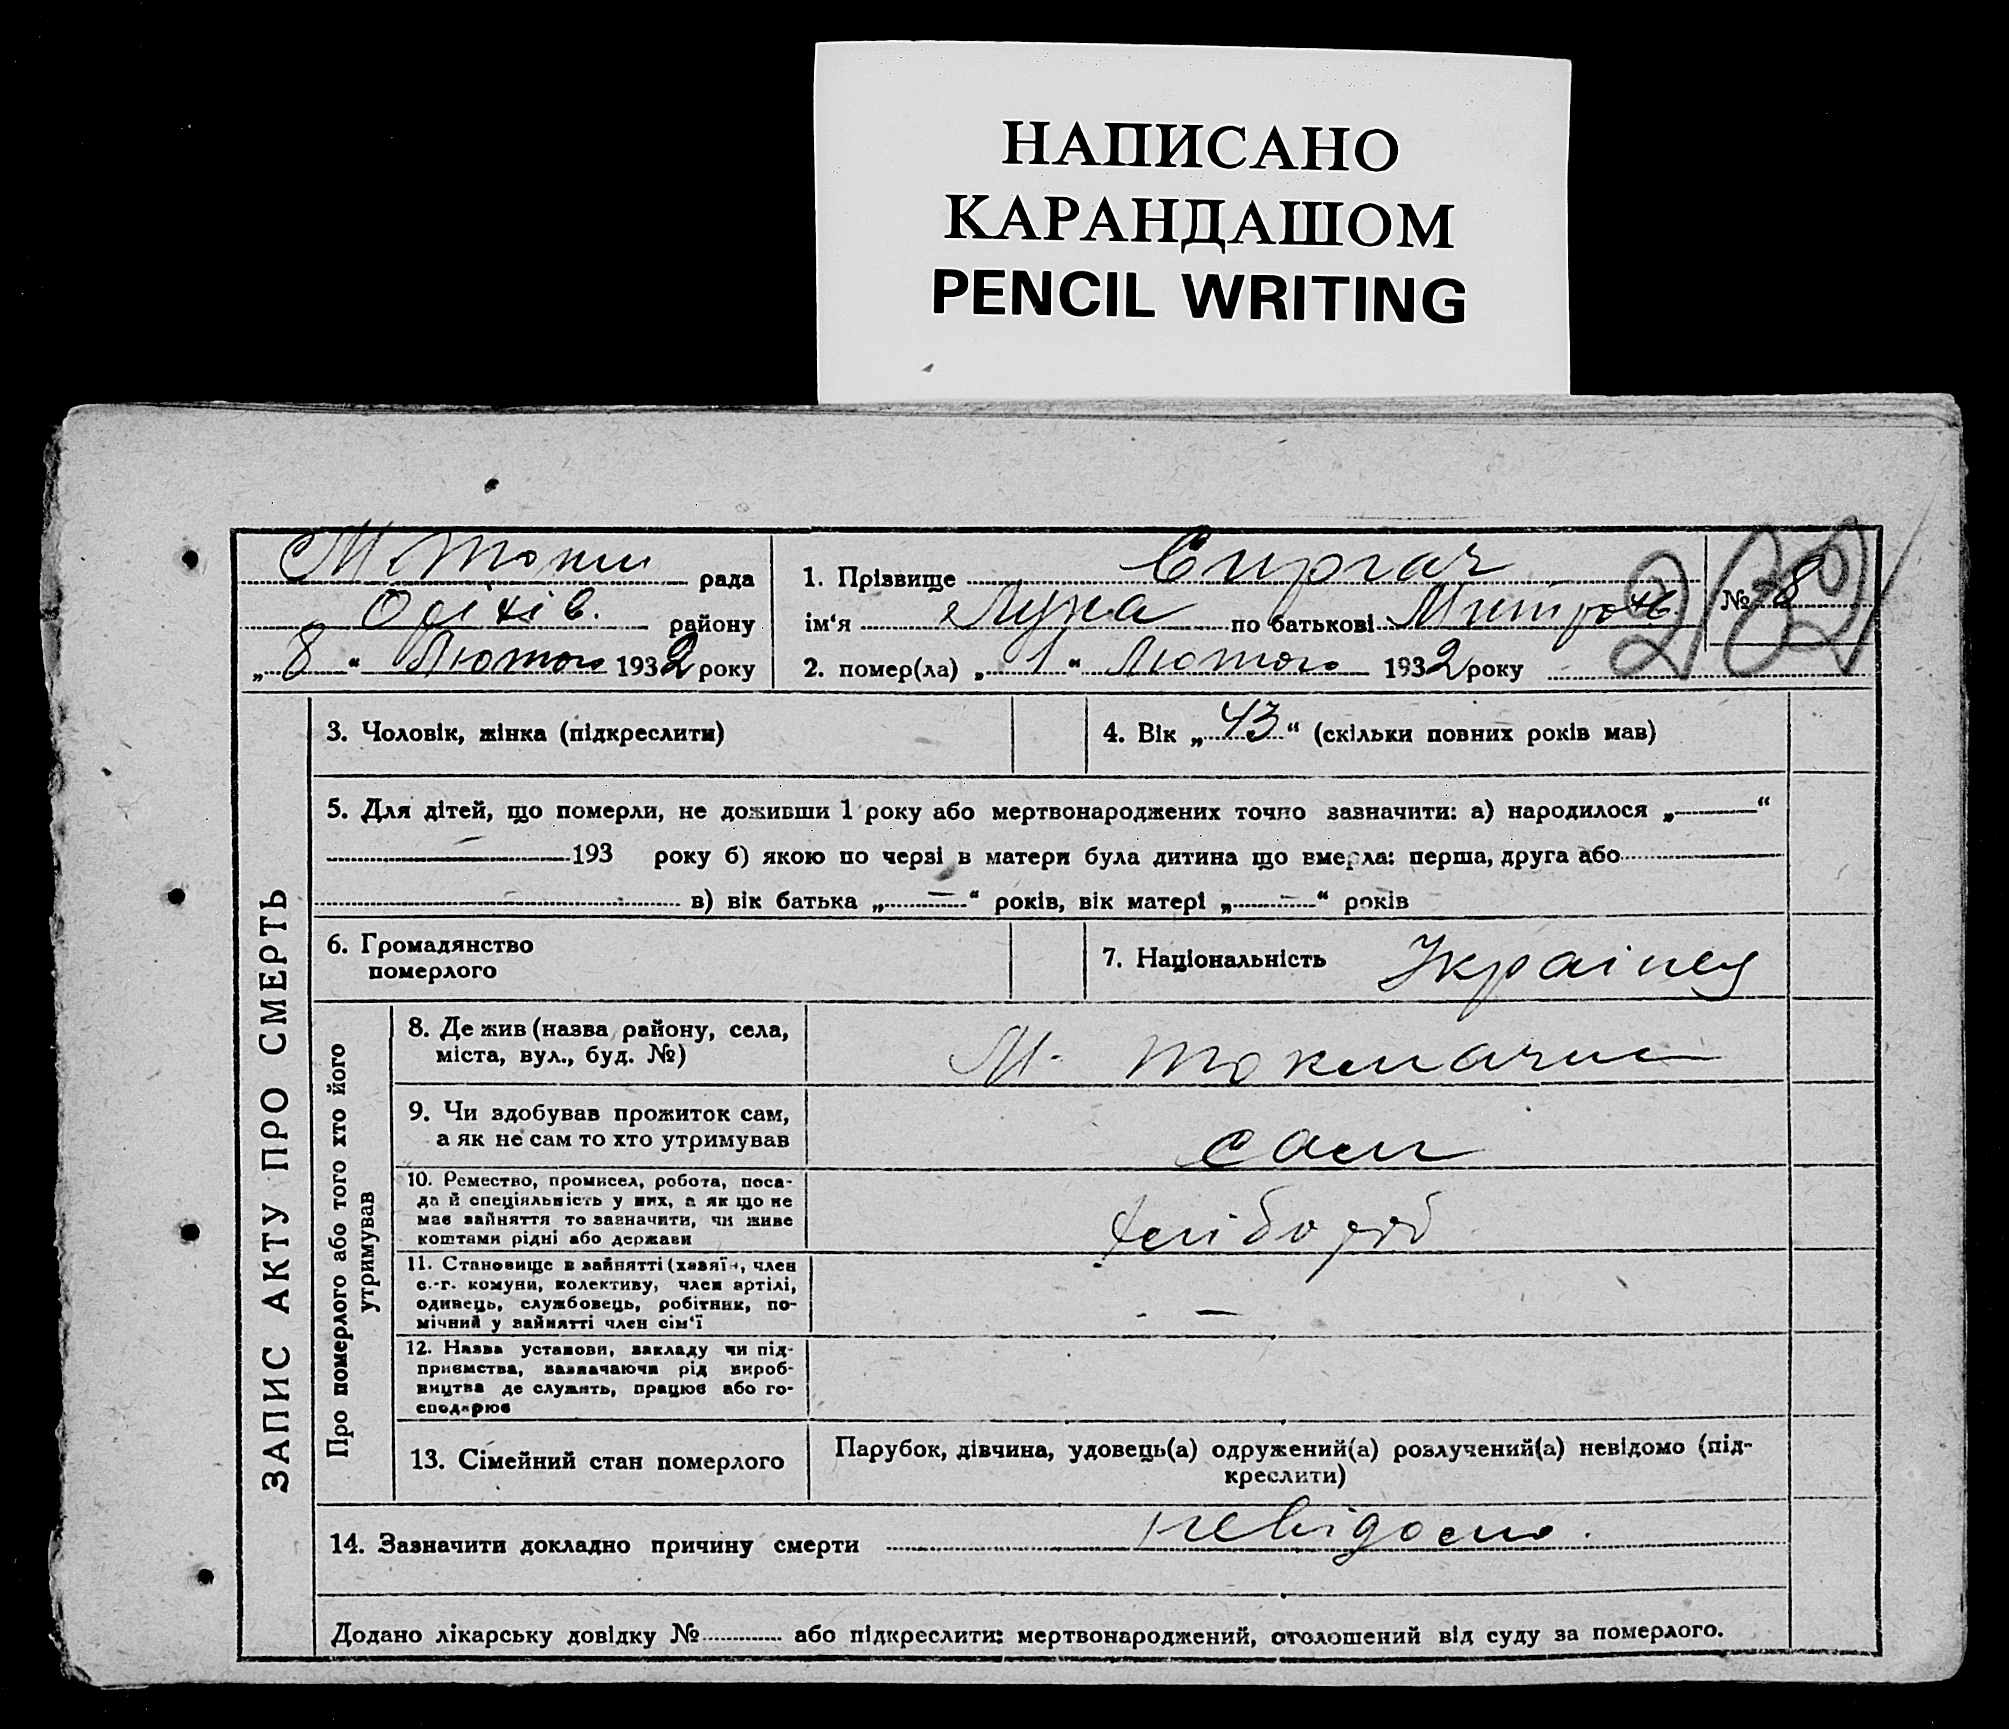 НАПИСАНО
КАРАНДАШОМ
PENCIL WRITING
М Токм рада
Оріхів. району
„ 8 “ Лютого 1932 року
1. Прізвище Сиргач
ім‘я Лука по батькові Митроф
2. помер(ла) „ 1 “ Лютого 1932 року
№ 8
232
ЗАПИС АКТУ ПРО СМЕРТЬ
3. Чоловік, жінка (підкреслити)
4. Вік „ 43 “ (скільки повних років мав)
5. Для дітей, що померли, не доживши 1 року або мертвонароджених точно зазначити: а) народилося „ — “
— 193 року б) якою по черзі в матери була дитина що вмерла: перша, друга або
в) вік батька „ — “ років, вік матері „ — “ років
6. Громадянство
померлого
7. Національність Українец
Про померлого або того хто його
утримував
8. Де жив (назва району, села,
міста, вул., буд. №)
М. Токмачка
9. Чи здобував прожиток сам,
а як не сам то хто утримував
сам
10. Ремество, промисел, робота, поса-
да й спеціяльність у них, а як що не
має зайняття то зазначити, чи живе
коштами рідні або держави
хлібороб
11. Становище в зайнятті (хазяїн, член
с.-г. комуни, колективу, член артілі,
одинець, службовець, робітник, по-
мічний у зайнятті член сім‘ї
—
12. Назва установи, закладу чи під-
приємства, зазначаючи рід вироб-
ництва де служить, працює або го-
сподарює
13. Сімейний стан померлого
Парубок, дівчина, удовець(а) одружений(а) розлучений(а) невідомо (під-
креслити)
14. Зазначити докладно причину смерти невідомо.
Додано лікарську довідку № або підкреслити: мертвонароджений, оголошений від суду за померлого.